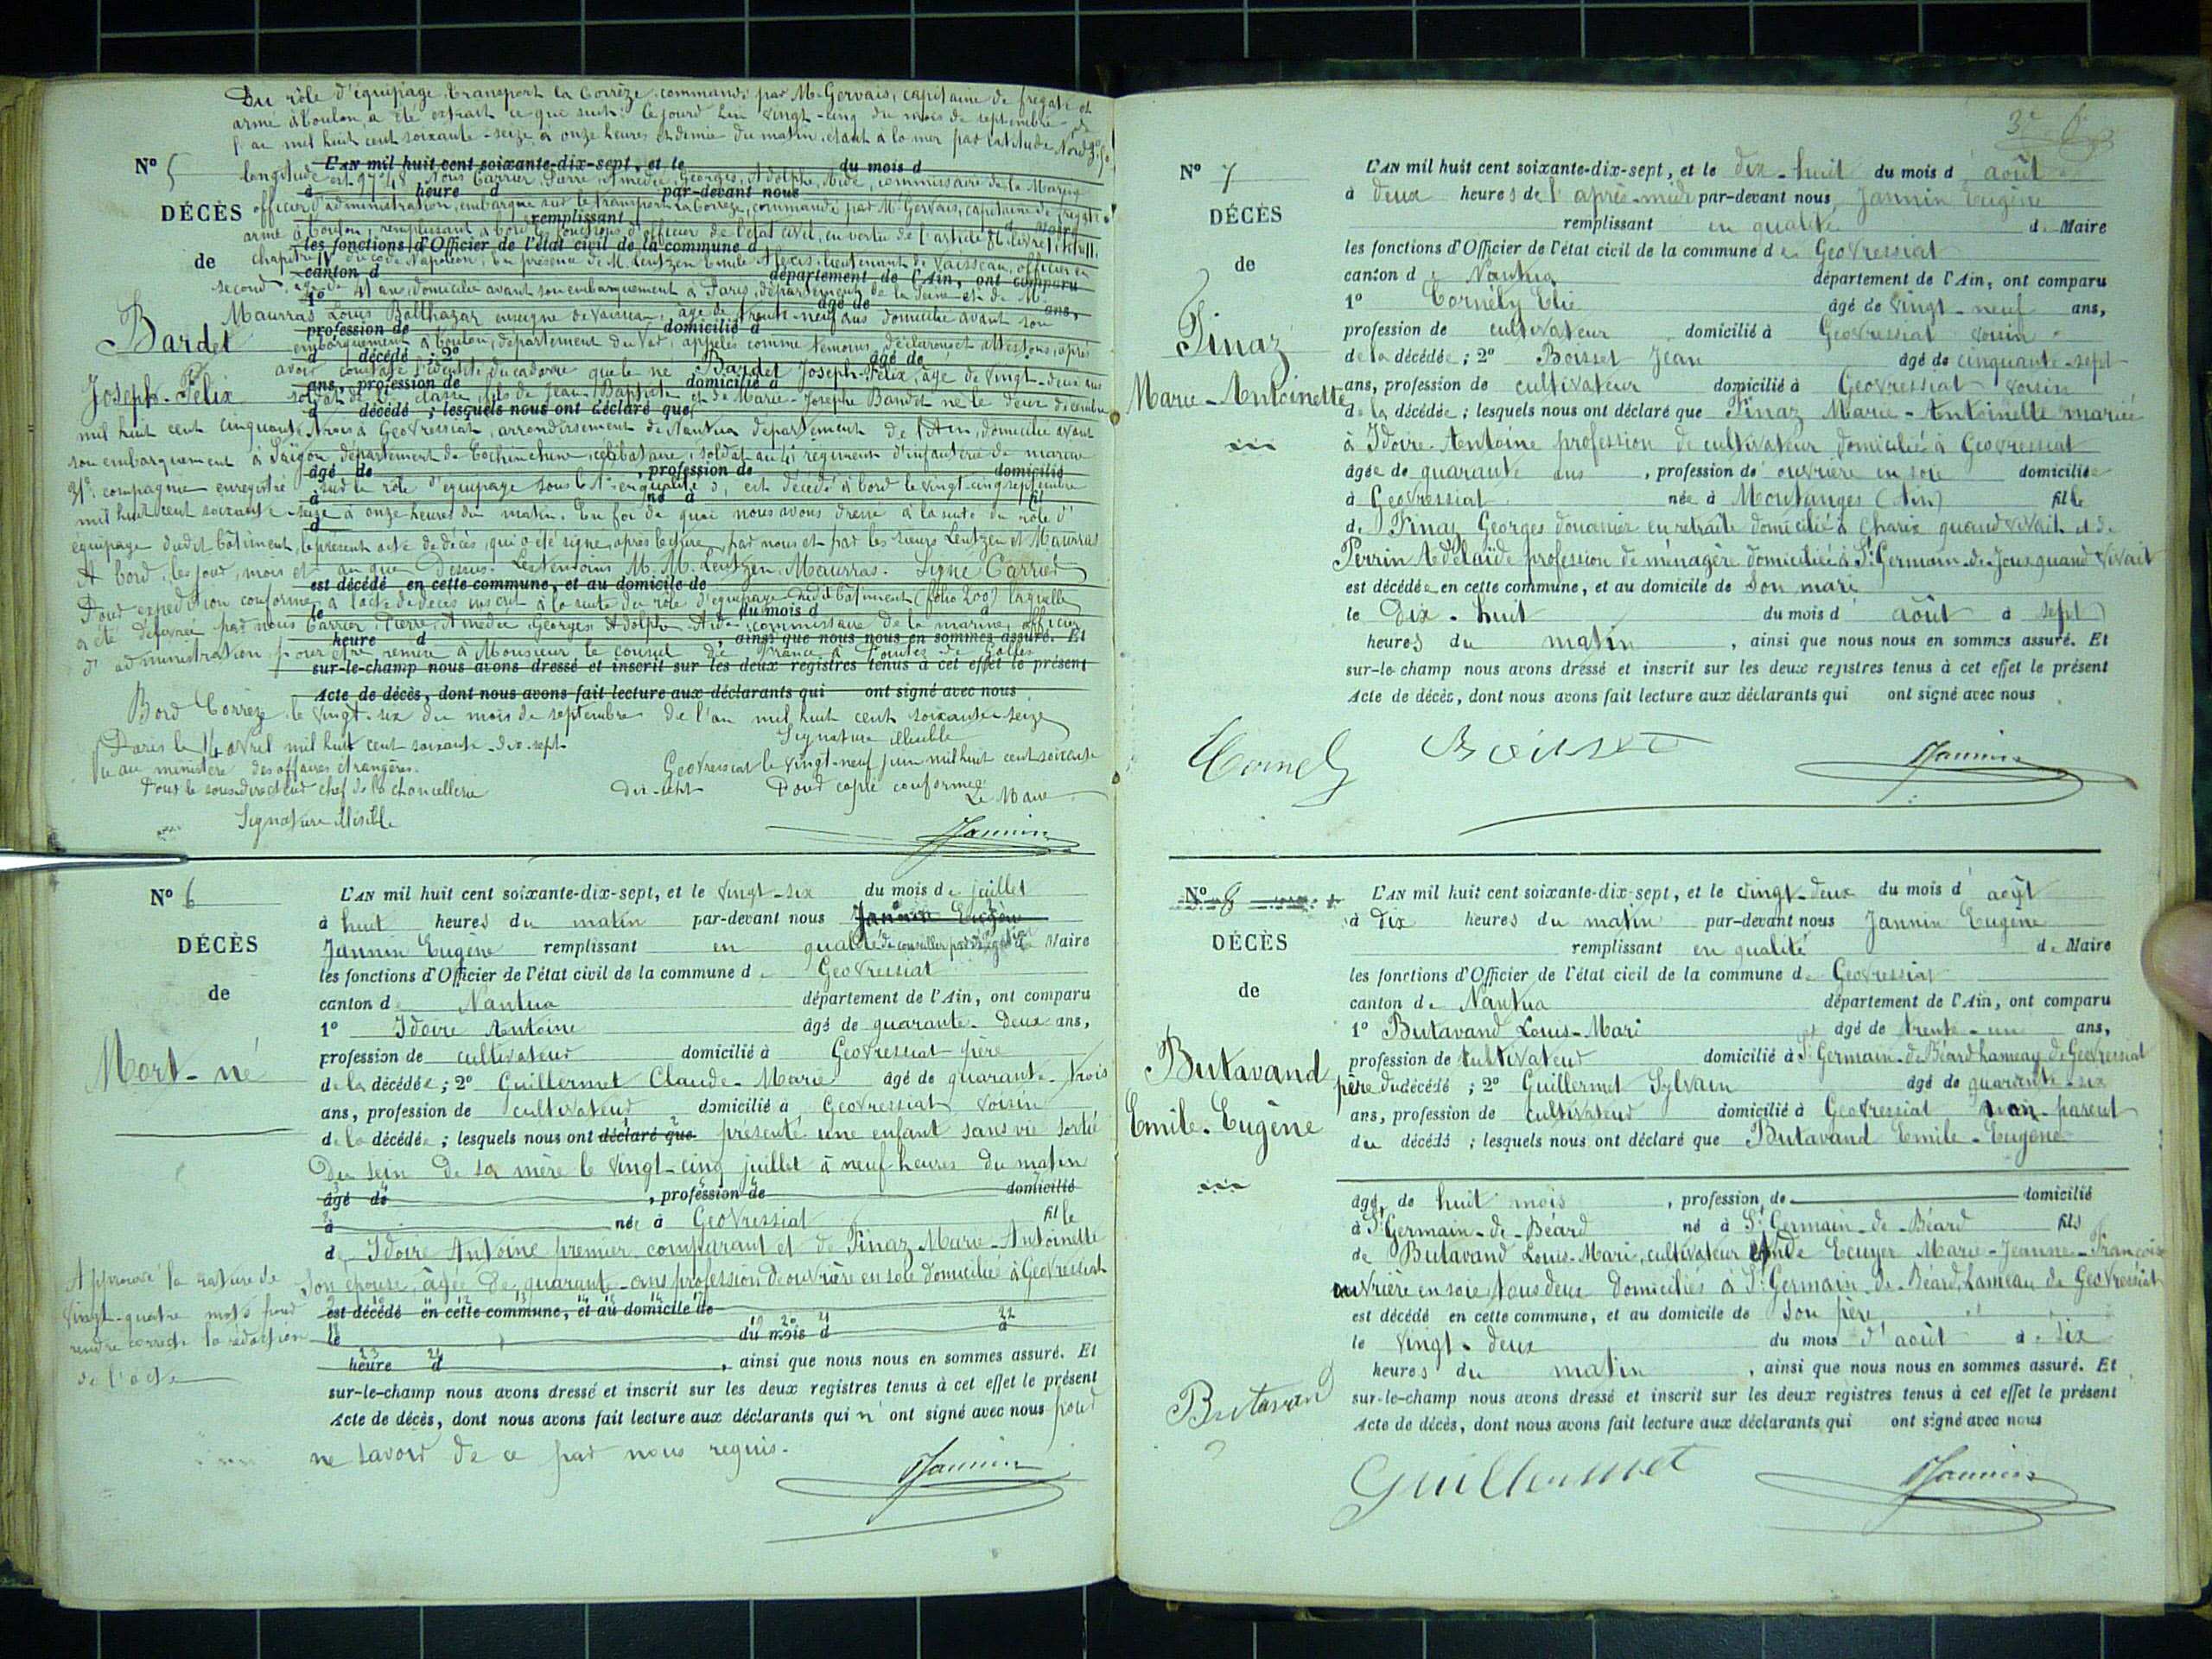 Du rôle d'équipage transport la Corrèze commandé par Mr Gervais, capitaine de frégate et
armé à Toulon a été extrait ce qui suit: Ce jourd'hui vingt-cinq du mois de septembre
l'an mil huit cent soixante-seize à onze heures et demie du matin, étant à la mer par latitude Nord
N° 5
L'AN mil huit cent soixante-dix-sept, et le du mois d
longitude est 97°48' Nous Carrier, Pierre, Amédée, Georges, Adolphe, Aide, commissaire de la Marine
à heure d par-devant nous
DÉCÈS
officier d'administration, embarqué sur le transport la Corrèze, commandé par Mr Gervais, capitaine de frégate
remplissant
armé à Toulon, remplissant à bord les fonctions d'officier de l'état civil, en vertu de l'article 86 livre 1er
les fonctions d'Officier de l'état civil de la commune d
de
chapitre IV du code Napoléon; En présence de M. Leutzen Emile Alexis, lieutenant de vaisseau, officier en
canton d département de l'Ain, ont comparu
second, âgé de 41 ans, domicilié avant son embarquement à Paris, département de la Seine et de Mr
1° âgé de ans,
Maurras Louis Balthazar enseigne de vaisseau, âgé de trente-neuf ans domicilié avant son
profession de domicilié à
Bardet
embarquement à Toulon, département du Var, appelés comme témoins, déclarons et attestons, après
d décédé ; 2° âgé de
avoir constaté l'identité du cadavre que le né Bardet Joseph-Félix, âgé de vingt-deux ans
ans, profession de domicilié à
Joseph-Félix
soldat de 2e classe, fils de Jean-Baptiste et de Marie-Josephe Bandet né le deux décembre
d décédé ; lesquels nous ont déclaré que
mil huit cent cinquante trois à Geovressiat, arrondissement de Nantua département de l'Ain, domicilié avant
son embarquement à Saïgon département de Cochinchine, célibataire, soldat au 4e régiment d'infanterie de marine
âgé de , profession de domicilié
31e compagnie enregistré sur le rôle d'équipage sous le n° en qualité d, est décédé à bord le vingt-cinq septembre
à né à fil
mil huit cent soixante-seize à onze heures du matin. En foi de quoi nous avons dressé à la suite du rôle d'
d
équipage dudit bâtiment, le présent acte de décès, qui a été signé, après lecture, par nous et par les sieurs Leutzen et Maurras
A bord, les jour, mois et an que Dessus. Les témoins M. M. Leutzen, Maurras. Signé Carrier
est décédé en cette commune, et au domicile de
Pour expédition conforme à l'acte de décès inscrit à la suite du rôle d'équipage dudit bâtiment (folio 200) laquelle
le du mois d à
a été délivrée par nous Carrier, Pierre, Amédée, Georges Adolphe Aide-commissaire de la marine, officier
heure d , ainsi que nous nous en sommes assuré. Et
d'administration, pour être remise à Monsieur le consul de France à Pointes de Galles
sur-le-champ nous avons dressé et inscrit sur les deux registres tenus à cet effet le présent
Acte de décès, dont nous avons fait lecture aux déclarants qui ont signé avec nous
Bord Corrèze, le vingt-six du mois de septembre de l'an mil huit cent soixante-seize
Signature illisible
Paris le 14 avril mil huit cent soixante-dix-sept
Vu au ministère des affaires étrangères.
Geovressiat le vingt-neuf juin mil huit cent soixante
Pour le sous-directeur chef de la chancellerie
dix-sept Pour copie conforme
Le Maire
Signature illisible
Jannin
N° 6
L'AN mil huit cent soixante-dix-sept, et le vingt-six du mois de juillet
à huit heures du matin par-devant nous Jannin Eugène
DÉCÈS
Jannin Eugène remplissant en qualité de conseiller par délégation Maire
les fonctions d'Officier de l'état civil de la commune de Geovressiat
de
canton de Nantua département de l'Ain, ont comparu
1° Idoire Antoine âgé de quarante-deux ans,
profession de cultivateur domicilié à Geovressiat père
Mort-né
de la décédée ; 2° Guillermet Claude-Marie âgé de quarante-trois
ans, profession de cultivateur domicilié à Geovressiat voisin
de la décédée ; lesquels nous ont déclaré que présenté une enfant sans vie sortie
Du sein de sa mère le vingt-cinq juillet à neuf heures du matin
âgé de , profession de domicilié
à née à Geovressiat fille
de Idoire Antoine premier comparant et de Pinaz Marie-Antoinette
Son épouse, âgée de quarante-ans profession d'ouvrière en soie domiciliée à Geovressiat
est décédé en cette commune, et au domicile de
le du mois d à
heure d , ainsi que nous nous en sommes assuré. Et
sur-le-champ nous avons dressé et inscrit sur les deux registres tenus à cet effet le présent
Acte de décès, dont nous avons fait lecture aux déclarants qui n'ont signé avec nous pour
ne savoir de ce par nous requis.
Jannin
Approuvé la rature de
vingt-quatre mots pour
rendre correcte la rédaction
de l'acte
3e f.
N° 7
L'AN mil huit cent soixante-dix-sept, et le dix-huit du mois d'août
à deux heures de l'après-midi par-devant nous Jannin Eugène
DÉCÈS
remplissant en qualité de Maire
les fonctions d'Officier de l'état civil de la commune de Geovressiat
de
canton de Nantua département de l'Ain, ont comparu
1° Cornély Elie âgé de vingt-neuf ans,
Pinaz
profession de cultivateur domicilié à Geovressiat voisin
de la décédée ; 2° Boisset Jean âgé de cinquante-sept
Marie-Antoinette
ans, profession de cultivateur domicilié à Geovressiat voisin
de la décédée ; lesquels nous ont déclaré que Pinaz Marie-Antoinette mariée
à Idoire Antoine profession de cultivateur domicilié à Geovressiat
âgée de quarante ans , profession d'ouvrière en soie domiciliée
à Geovressiat née à Montanges (Ain) fille
de Pinaz Georges douanier en retraite domicilié à Charix quand vivait et de
Perrin Adélaïde profession de ménagère domiciliée à St Germain-de-Joux quand vivait
est décédée en cette commune, et au domicile de Son mari
le Dix-huit du mois d'août à sept
heures du matin , ainsi que nous nous en sommes assuré. Et
sur-le-champ nous avons dressé et inscrit sur les deux registres tenus à cet effet le présent
Acte de décès, dont nous avons fait lecture aux déclarants qui ont signé avec nous
Cornely Boisset Jannin
N° 8
L'AN mil huit cent soixante-dix-sept, et le vingt-deux du mois d'août
à dix heures du matin par-devant nous Jannin Eugène
DÉCÈS
remplissant en qualité de Maire
les fonctions d'Officier de l'état civil de la commune de Geovressiat
de
canton de Nantua département de l'Ain, ont comparu
1° Butavand Louis-Mari âgé de trente-un ans,
Butavand
profession de cultivateur domicilié à St Germain-de-Béard hameau de Geovressiat
père du décédé ; 2° Guillermet Sylvain âgé de quarante-six
Emile-Eugène
ans, profession de cultivateur domicilié à Geovressiat non-parent
du décédé ; lesquels nous ont déclaré que Butavand Emile-Eugène
âgé de huit mois , profession de domicilié
à St Germain-de-Béard né à St Germain-de-Béard fils
de Butavand Louis-Mari, cultivateur et de Ecuyer Marie-Jeanne-Françoise
ouvrière en soie, tous deux domiciliés à St Germain-de-Béard, hameau de Geovressiat
est décédé en cette commune, et au domicile de Son père
le vingt-deux du mois d'août à six
heures du matin , ainsi que nous nous en sommes assuré. Et
sur-le-champ nous avons dressé et inscrit sur les deux registres tenus à cet effet le présent
Acte de décès, dont nous avons fait lecture aux déclarants qui ont signé avec nous
Butavand
Guillermet Jannin